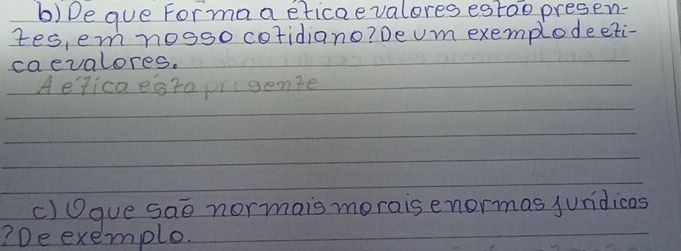 b) De que Forma a éticae valores estão presen-
tes, em nosso cotidiano? De um exemplo de eti-
ca e valores.
A etica esta presente
c) O que são normais morais e normas jurídicas
? De exemplo.